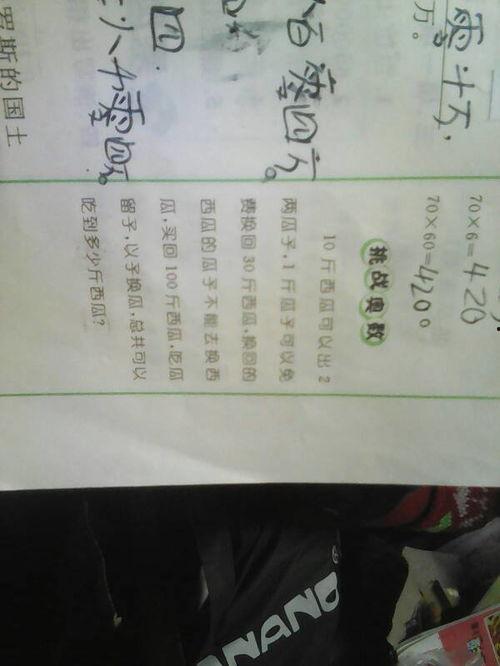 零十万，
万。
八百零四万。
四.
罗斯的国土
70×6=420
70×60=4200
挑战奥数
10斤西瓜可以出2
两瓜子，1斤瓜子可以免
费换回30斤西瓜，换回的
西瓜的瓜子不能去换西
瓜，买回100斤西瓜，吃瓜
留子，以子换瓜，总共可以
吃到多少斤西瓜？
NANO